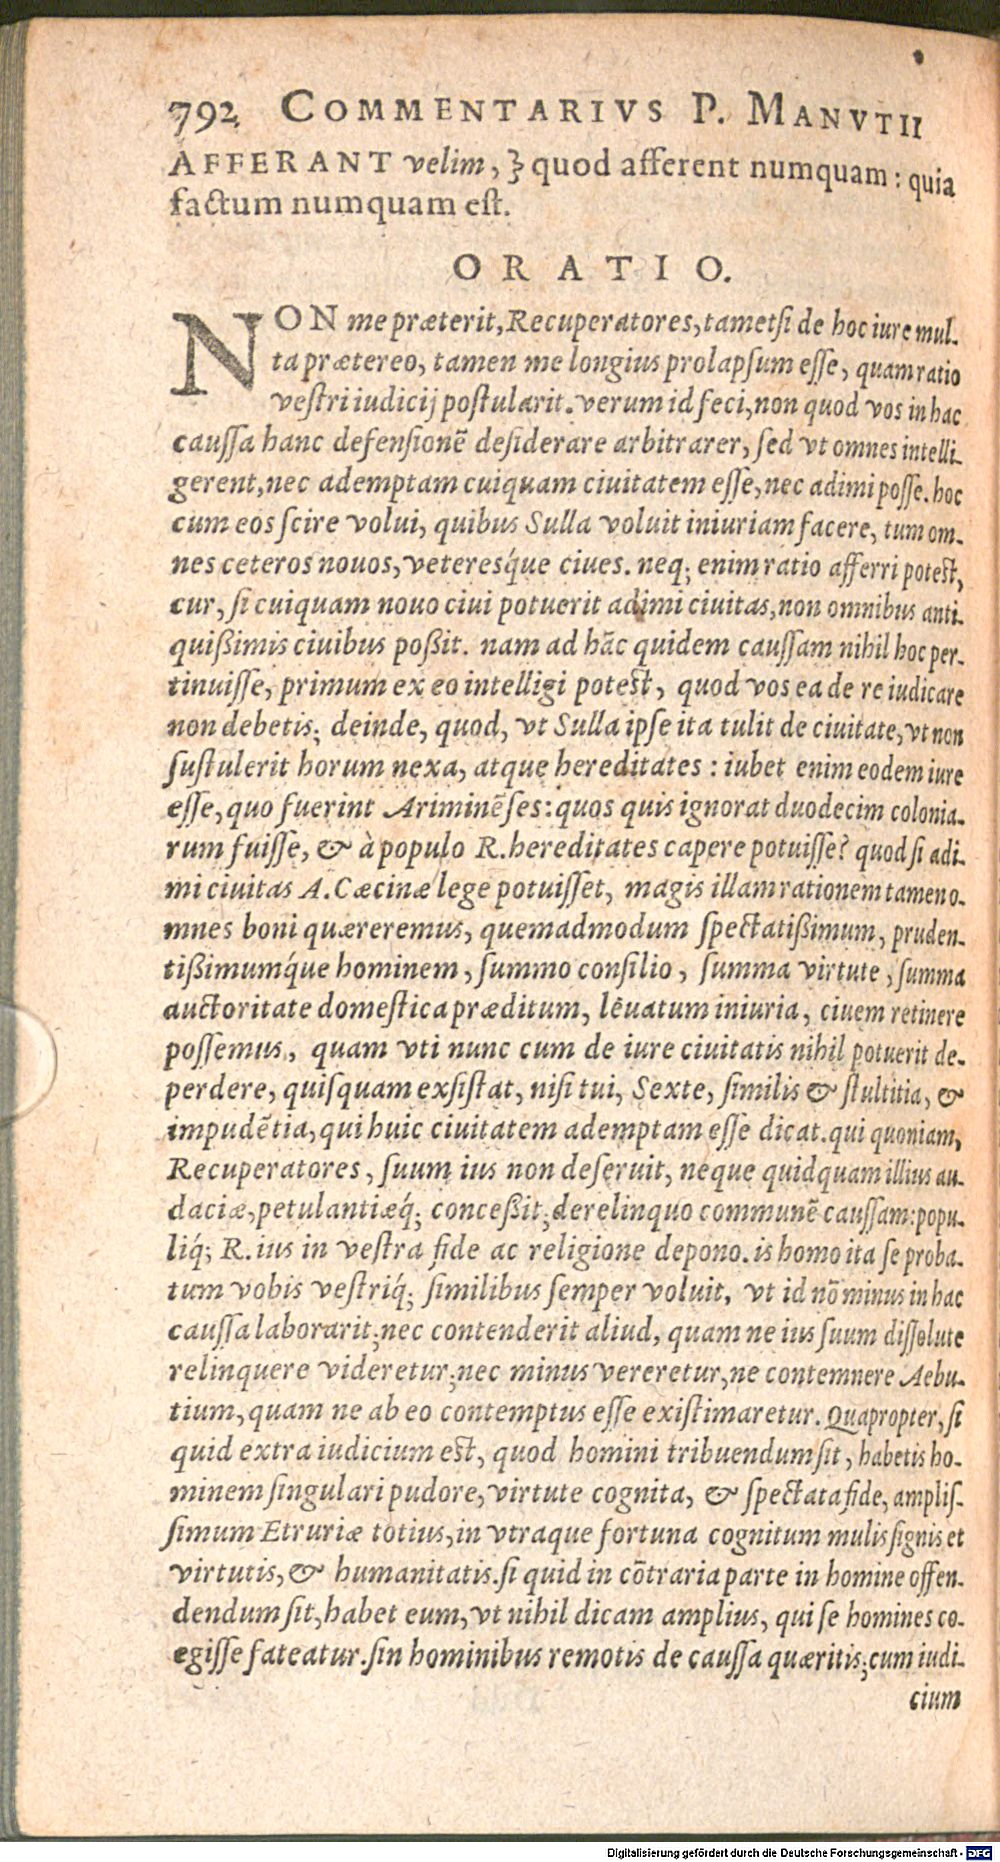 792 COMMENTARIVS P. MANVTII
AFFERANT velim, ꝫ quod afferent numquam: quia
factum numquam est.
ORATIO.
NON me præterit, Recuperatores, tametsi de hoc iure mul-
ta prætereo, tamen me longius prolapsum esse, quam ratio
vestri iudicij postularit. verum id feci, non quod vos in hac
caussa hanc defensionē desiderare arbitrarer, sed vt omnes intelli-
gerent, nec ademptam cuiquam ciuitatem esse, nec adimi posse. hoc
cum eos scire volui, quibus Sulla voluit iniuriam facere, tum om-
nes ceteros nouos, veteresq́ue ciues. neq; enim ratio afferri potest,
cur, si cuiquam nouo ciui potuerit adimi ciuitas, non omnibus anti-
quißimis ciuibus poßit. nam ad hāc quidem caussam nihil hoc per-
tinuisse, primum ex eo intelligi potest, quod vos ea de re iudicare
non debetis; deinde, quod, vt Sulla ipse ita tulit de ciuitate, vt non
sustulerit horum nexa, atque hereditates: iubet enim eodem iure
esse, quo fuerint Ariminēses: quos quis ignorat duodecim colonia-
rum fuisse, & à populo R. hereditates capere potuisse? quod si adi-
mi ciuitas A. Cæcinæ lege potuisset, magis illam rationem tamen o-
mnes boni quæreremus, quemadmodum spectatißimum, pruden-
tißimumq́ue hominem, summo consilio, summa virtute, summa
auctoritate domestica præditum, leuatum iniuria, ciuem retinere
possemus, quam vti nunc cum de iure ciuitatis nihil potuerit de-
perdere, quisquam exsistat, nisi tui, Sexte, similis & stultitia, &
impudētia, qui huic ciuitatem ademptam esse dicat. qui quoniam,
Recuperatores, suum ius non deseruit, neque quidquam illius au-
daciæ, petulantiæq́; conceßit; derelinquo communē caussam: popu-
liq́; R. ius in vestra fide ac religione depono. is homo ita se proba-
tum vobis vestriq́; similibus semper voluit, vt id nō minus in hac
caussa laborarit; nec contenderit aliud, quam ne ius suum dissolute
relinquere videretur; nec minus vereretur, ne contemnere Aebu-
tium, quam ne ab eo contemptus esse existimaretur. Quapropter, si
quid extra iudicium est, quod homini tribuendum sit, habetis ho-
minem singulari pudore, virtute cognita, & spectata fide, amplis-
simum Etruriæ totius, in vtraque fortuna cognitum mulis signis et
virtutis, & humanitatis. si quid in cōtraria parte in homine offen-
dendum sit, habet eum, vt nihil dicam amplius, qui se homines co-
egisse fateatur. sin hominibus remotis de caussa quæritis; cum iudi-
cium
Digitalisierung gefördert durch die Deutsche Forschungsgemeinschaft - DFG